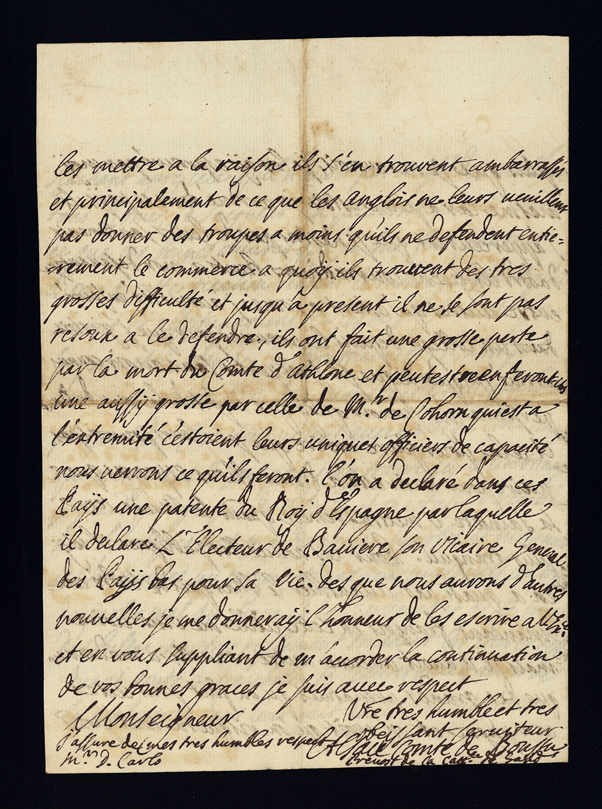 les mettre a la raison ils s'en trouvent ambarrasses
et principalement de ce que les Anglois ne leurs veuillent
pas donner des troupes a moins qu'ils ne defendent entie=
=rement le commerce a quoÿ ils trouvent des tres
grosses difficulté et jusqu'a present il ne se sont pas
resouu a le defendre, ils ont fait une grosse perte
par la mort du Comte d'Athlone et peutestre en feront ils
une aussÿ grosse par celle de M.r de Cohorn qui est a
l'extremité c'estoient leurs uniques officiers de capacité
nous verrons ce qu'ils feront. l'on a declaré dans ces
Païjs une patente du Roÿ d'Espagne par laquelle
il declare L'Electeur de Baviere son Vicaire General
des Païjs bas pour sa vie. des que nous aurons d'autres
nouvelles je me donneraÿ l'honneur de les escrire a
et en vous suppliant de m'accorder la continuation
de vos bonnes graces je suis avec respect
Monseigneur
Vre tres humble et tres
obeissant serviteur
J'assure de mes tres humbles respects
Comte de
M.r D. Carlo
Prevost de la de Gand